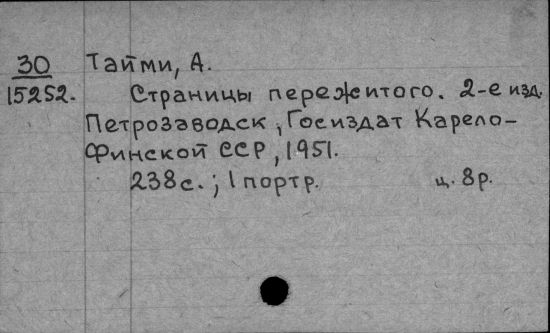 30 Тайми, А.
15252. Страницы пережитого. 2-е изд.
Петрозаводск, Госиздат Карело-
Финской ССР, 1951.
238с.; 1 портр. ц. 8р.